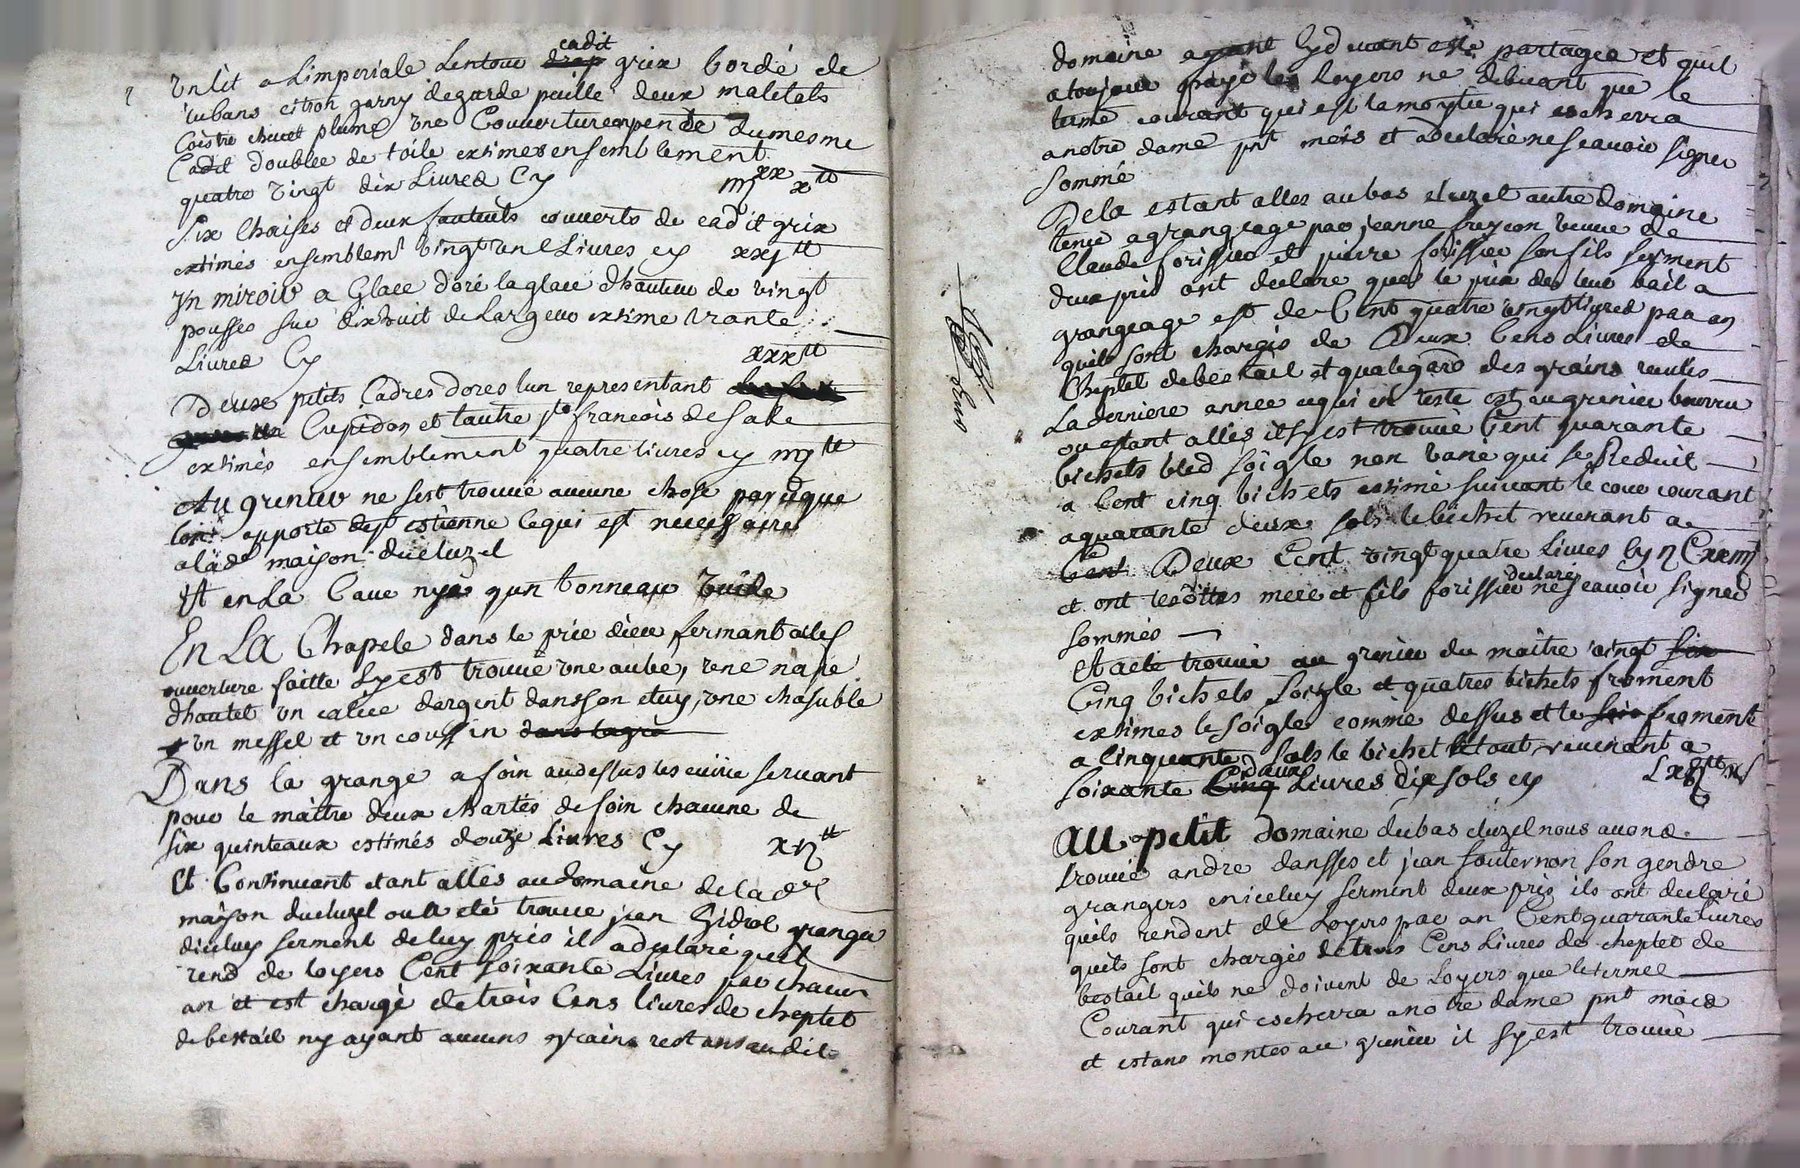 Un lit a Limperiale Lentour drap cadit grix bordé de
rubans citron garny degarde paille deux matelats
Coistre chevet plume Une Couverture enpende Dumesme
Cadit doublee de toile extimes ensemblement
quatre vingt dix Livres Cy iiijxx x tt
Six Chaises et deux fauteuls couverts de cadit grix
extimés ensemblemt vingt un Livres cy xxj tt
Un miroir a Glace doré la glace dhauteur de vingt
pousses sur dixhuit de Largeur extime trante
Livres Cy xxx tt
Deux petits Cadres dores lun representant
Cupidon et lautre st francois de Sale
extimés ensemblement quatre livres cy iiij tt
Au grenier ne sest trouvé aucune chose parceque
lon apporte dest estienne cequi est necessaire
aladt maison ducluzel
Et en La Cave nya qun tonneau Vuide
En La Chapele dans le prie dieu fermant aclef
ouverture faitte Sy est trouvé une aube, une nape
dhautel un calice dargent dansson etuy, une chasuble
un messel et un coussin dans lagre
Dans la grange afoin audessus lescuirie servant
pour le maître deux chartés de foin chacune de
six quinteaux estimés douze Livres Cy xij tt
Et Continuant etant alles audomaine deladt
maison ducluzel ou a eté trouve jean Gidrol granger
diceluy serment deluy pris il adeclaré quil
rend de loyers Cent soixante Livres par chacun
an et est chargé de trois Cens livres de cheptel
debestail ny ayant aucuns grains restans audit
domaine ayant Cydevant esté partagée et quil
atoujour payé les Loyers ne debvant que le
terme courant qui est lamoytié qui escherra
anotre dame pnt mois et adeclaré nescavoir signer
Sommé
Dela estant alles aubas cluzel autre domaine
tenu agrangeage par jeanne freyeon veuve de
Claude forissier et pierre forissier son fils serment
deux pris ont declare que le prix de leur bail a
grangeage est de Cent quatre vingt livres par an
quils sont chargés de Deux Cens Livres de
Cheptel debestail et qualegard des grains
La derniere annee cequi en reste est augrenier
ou estant allés ilsy est trouvé Cent quarante
bichets bled soigle non vané qui se Reduit
a Cent cinq bichets estimé suivant le cour courant
aquarante deux sols lebichet revenant a
Cent Deux Cent vingt quatre Livres Cy
et ont lesdttes mere et fils forissier declaré nescavoir signer
Sommés
Et aeté trouvé au grenier du maître vingt six
Cinq bichets soigle et quatres bichets froment
extimes le soigle comme dessus et le froment
a Cinquante sols le bichet le tout revenant a
soixante Cinq deux Livres dix sols cy Lxij tt x s
Au petit domaine dubas cluzel nous avons
trouvé andre dansses et jean souternon son gendre
grangers eniceluy serment deux pris ils ont declaré
quils rendent de Loyers par an Cent quarante Livres
quils sont chargés de trois Cens Livres de cheptel de
bestail quils ne doivent de Loyers que letermes
Courant qui escherra anotre dame pnt mois
et estans montés au grenier il sy est trouvé